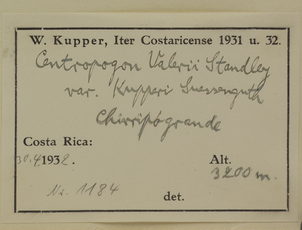 W. Kupper, Iter Costaricense 1931 u. 32.
Centropogon Valerii Standley
var. Kupperi Suessenguth
Chirripógrande
Costa Rica:
30.4.1932.
Alt.
3200 m.
Nr. 1184
det.